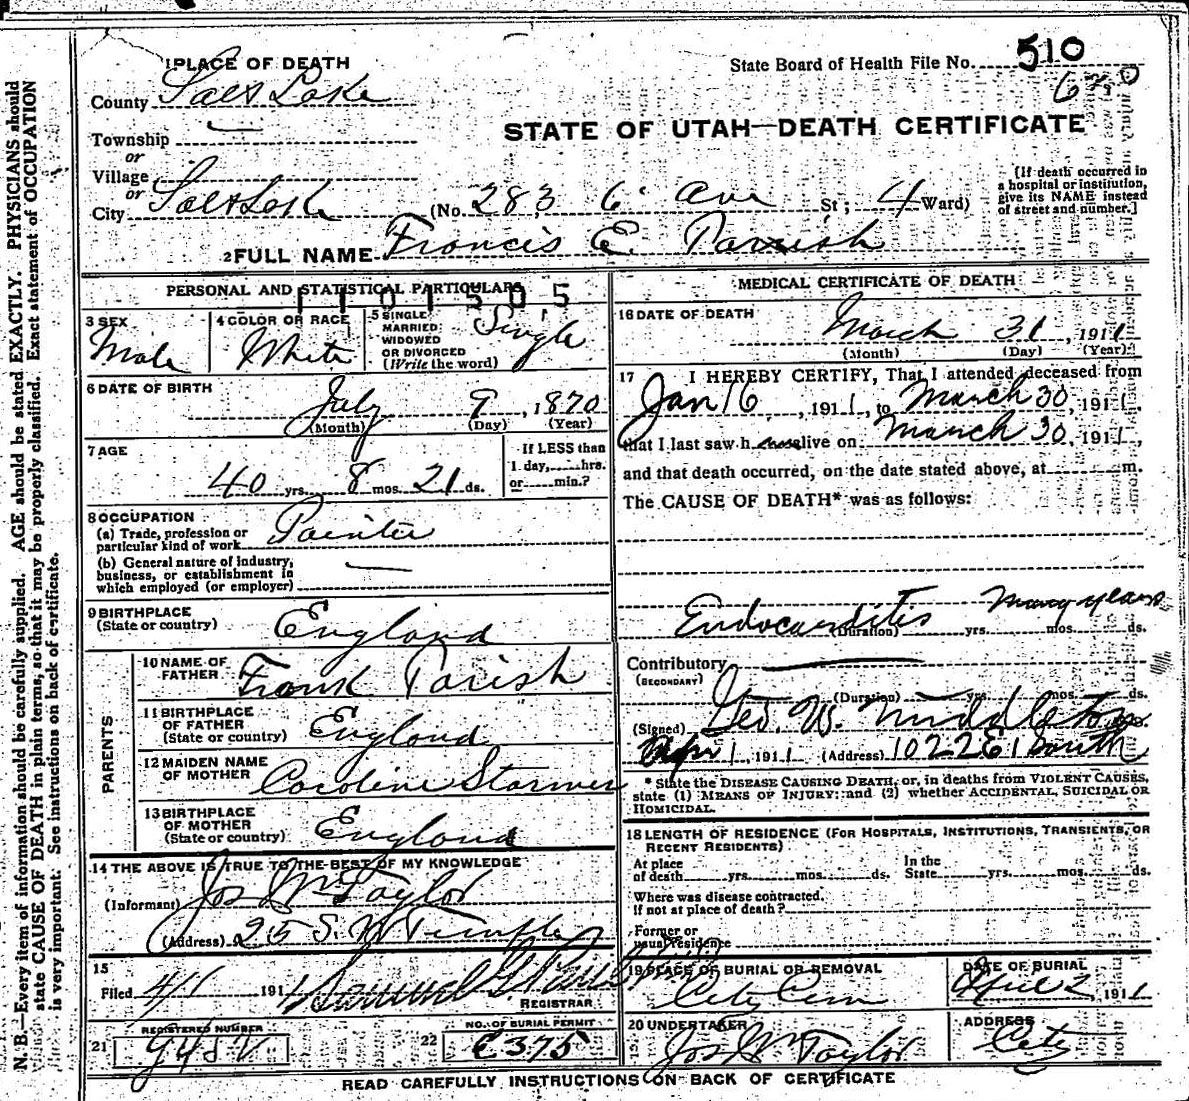 N. B.—Every item of information should be carefully supplied. AGE should be stated EXACTLY. PHYSICIANS should
state CAUSE OF DEATH in plain terms, so that it may be properly classified. Exact statement of OCCUPATION
is very important. See instructions on back of certificate.
1 PLACE OF DEATH
State Board of Health File No. 510
County Salt Lake
STATE OF UTAH—DEATH CERTIFICATE
Township
or
Village
or
City Salt Lake (No. 283 6 Ave St; 4 Ward)
[If death occurred in
a hospital or institution,
give its NAME instead
of street and number.]
2 FULL NAME Francis E. Parrish
PERSONAL AND STATISTICAL PARTICULARS
1101505
3 SEX
Male
4 COLOR OR RACE
White
5 SINGLE,
MARRIED,
WIDOWED
OR DIVORCED
(Write the word)
Single
6 DATE OF BIRTH
July 9, 1870
(Month) (Day) (Year)
7 AGE
40 yrs. 8 mos. 21 ds.
If LESS than
1 day, hrs.
or min.?
8 OCCUPATION
(a) Trade, profession or
particular kind of work Painter
(b) General nature of industry,
business, or establishment in
which employed (or employer)
9 BIRTHPLACE
(State or country) England
PARENTS
10 NAME OF
FATHER Frank Parish
11 BIRTHPLACE
OF FATHER
(State or country) England
12 MAIDEN NAME
OF MOTHER Caroline Stormer
13 BIRTHPLACE
OF MOTHER
(State or country) England
14 THE ABOVE IS TRUE TO THE BEST OF MY KNOWLEDGE
(Informant) Jos Wm Taylor
(Address) 25 S. W Temple
15
Filed 4/1 1911 Samuel G. Paul
REGISTRAR
REGISTERED NUMBER
21
22 NO. OF BURIAL PERMIT
E375
MEDICAL CERTIFICATE OF DEATH
16 DATE OF DEATH
March 31, 1911
(Month) (Day) (Year)
17 I HEREBY CERTIFY, That I attended deceased from
Jan 16, 1911, to March 30, 1911,
that I last saw h alive on March 30, 1911,
and that death occurred, on the date stated above, at m.
The CAUSE OF DEATH* was as follows:
Endocarditis many years
(Duration) yrs. mos. ds.
Contributory
(SECONDARY)
(Duration) yrs. mos. ds.
(Signed) Geo. W. Middleton
Apr 1, 1911 (Address) 1022 E 1 South
* State the DISEASE CAUSING DEATH, or, in deaths from VIOLENT CAUSES,
state (1) MEANS OF INJURY; and (2) whether ACCIDENTAL, SUICIDAL OR
HOMICIDAL.
18 LENGTH OF RESIDENCE (FOR HOSPITALS, INSTITUTIONS, TRANSIENTS, OR
RECENT RESIDENTS)
At place
of death yrs. mos. ds.
In the
State yrs. mos. ds.
Where was disease contracted.
If not at place of death?
Former or
usual residence
19 PLACE OF BURIAL OR REMOVAL
City Cem
DATE OF BURIAL
April 2 1911
20 UNDERTAKER
Jos Wm Taylor
ADDRESS
City
READ CAREFULLY INSTRUCTIONS ON BACK OF CERTIFICATE